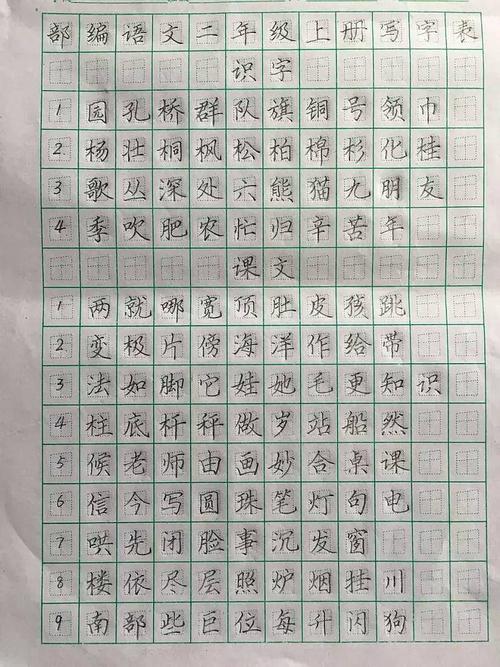 部编语文二年级上册写字表
识字
1 园孔桥群队旗铜号领巾
2 杨壮桐枫松柏棉杉化桂
3 歌丛深处六熊猫九朋友
4 季吹肥农忙归辛苦年
课文
1 两就哪宽顶肚皮孩跳
2 变极片傍海洋作给带
3 法如脚它娃她毛更知识
4 柱底杆秤做岁站船然
5 候老师由画妙合桌课
6 信今写圆珠笔灯句电
7 哄先闭脸事沉发窗
8 楼依尽层照炉烟挂川
9 南部些巨位每升闪狗